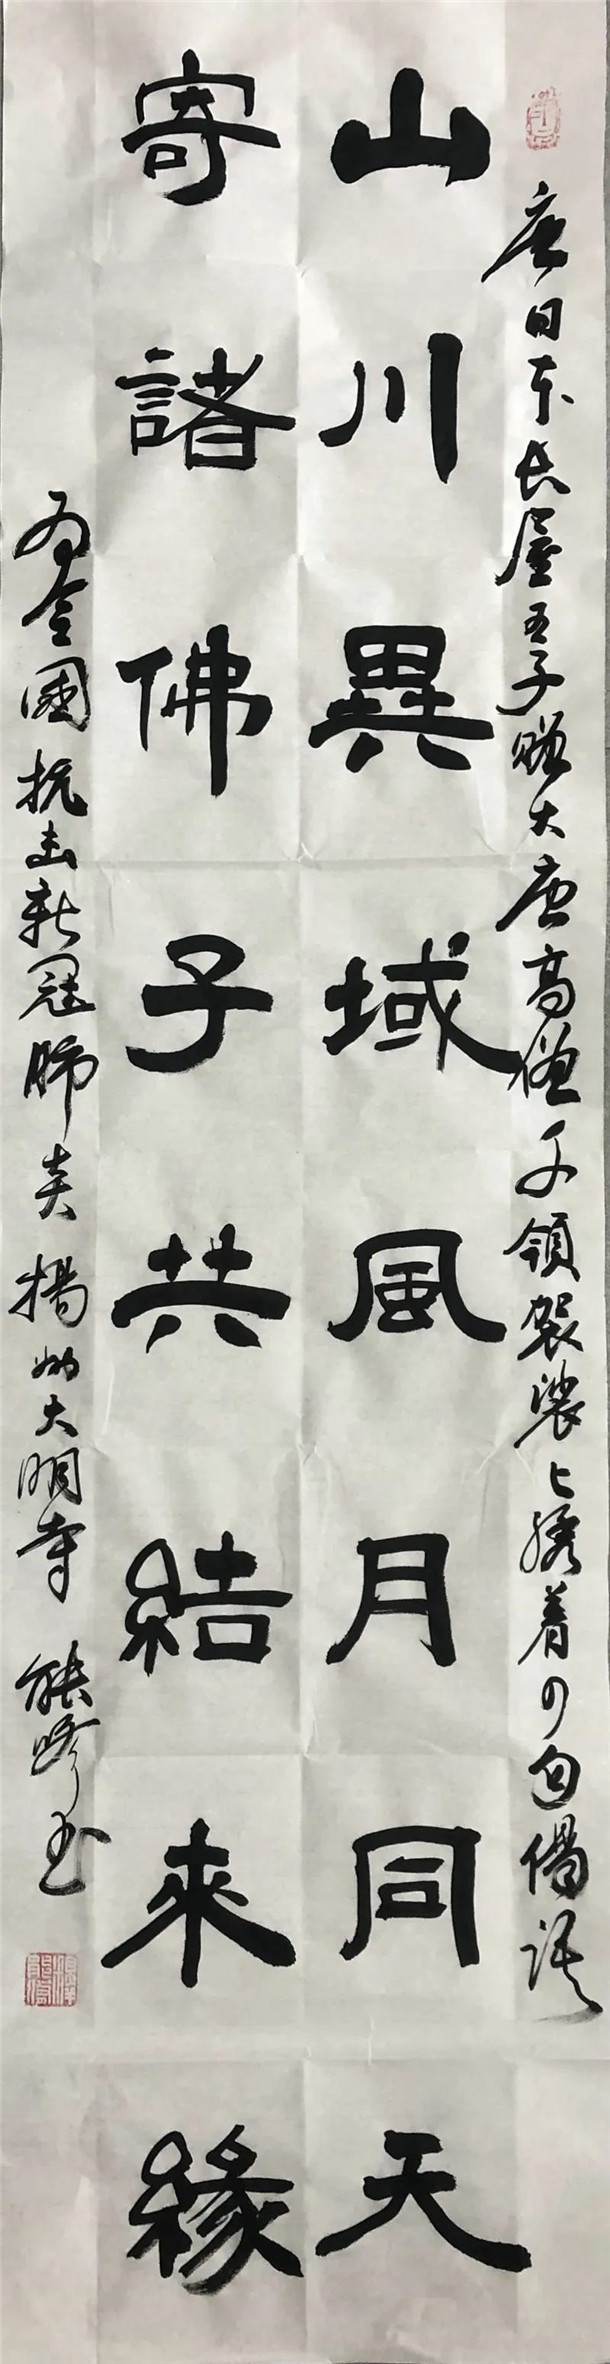 唐日本長屋王子贈大唐高僧千領袈裟上繡着四句偈語
山川異域風月同天
寄諸佛子共結來緣
为全國抗击新冠肺炎 揚州大明寺 能书